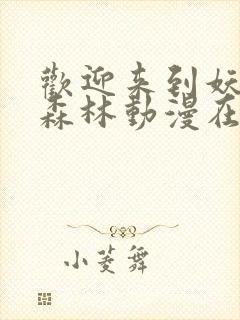 歡迎来到妖
森林動漫在
小菱舞